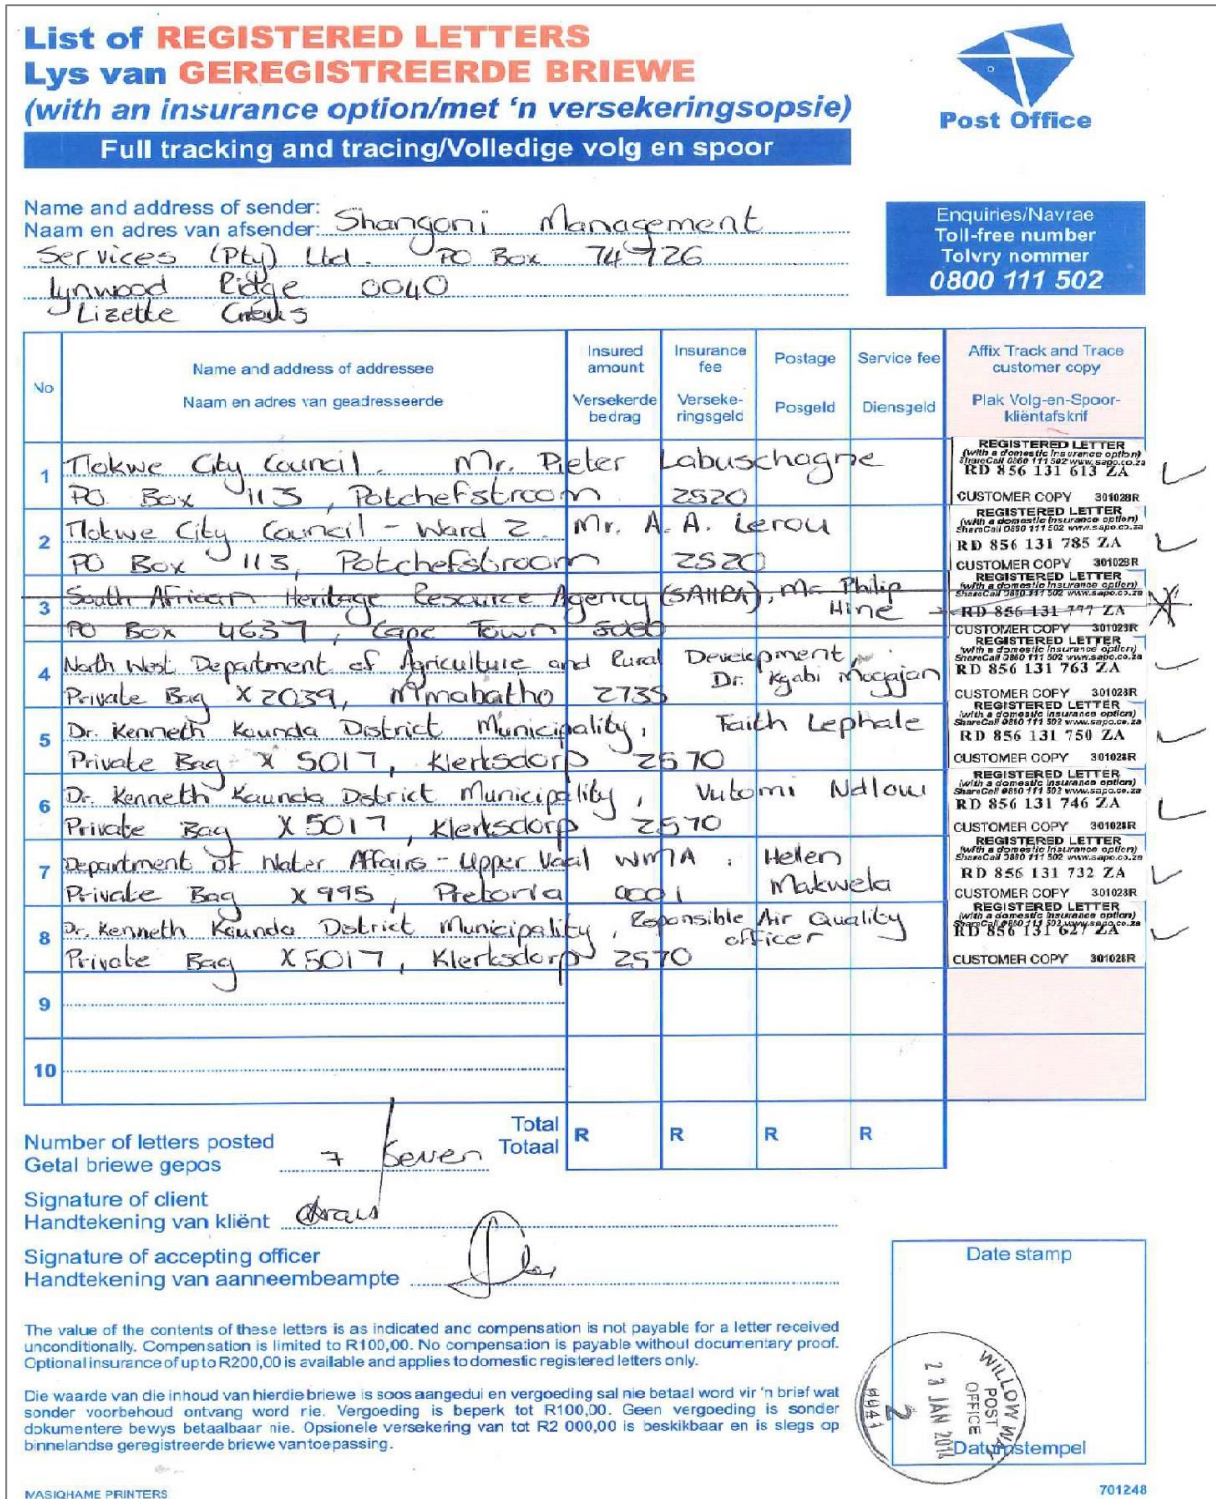 List of REGISTERED LETTERS
Lys van GEREGISTREERDE BRIEWE
(with an insurance option/met 'n versekeringsopsie)
Full tracking and tracing/Volledige volg en spoor
Post Office
Name and address of sender:
Naam en adres van afsender: Shangoni Management
Services (Pty) Ltd. PO Box 74726
Lynwood Ridge 0040
Lizette
Enquiries/Navrae
Toll-free number
Tolvry nommer
0800 111 502
No
Name and address of addressee
Naam en adres van geadresseerde
Insured amount
Versekerde bedrag
Insurance fee
Verseke-ringsgeld
Postage
Posgeld
Service fee
Diensgeld
Affix Track and Trace customer copy
Plak Volg-en-Spoor-kliëntafskrif
1 Tlokwe City Council. Mr. Pieter Labuschagne
PO Box 113, Potchefstroom 2520
REGISTERED LETTER
(with a domestic insurance option)
ShareCall 0860 111 502 www.sapo.co.za
RD 856 131 613 ZA
CUSTOMER COPY 301028R
2 Tlokwe City Council - Ward 2. Mr. A. A. Lerou
PO Box 113, Potchefstroom 2520
REGISTERED LETTER
(with a domestic insurance option)
ShareCall 0860 111 502 www.sapo.co.za
RD 856 131 785 ZA
CUSTOMER COPY 301028R
3 South African Heritage Resource Agency (SAHRA), Mr Philip
Hine
PO Box 4637, Cape Town
REGISTERED LETTER
(with a domestic insurance option)
ShareCall 0860 111 502 www.sapo.co.za
RD 856 131 777 ZA
CUSTOMER COPY 301028R
4 North West Department of Agriculture and Rural Development,
Dr. Kgabi Mogajan
Private Bag X2039, Mmabatho 2735
REGISTERED LETTER
(with a domestic insurance option)
ShareCall 0860 111 502 www.sapo.co.za
RD 856 131 763 ZA
CUSTOMER COPY 301028R
5 Dr. Kenneth Kaunda District Municipality, Faith Lephale
Private Bag X 5017, Klerksdorp 2570
REGISTERED LETTER
(with a domestic insurance option)
ShareCall 0860 111 502 www.sapo.co.za
RD 856 131 750 ZA
CUSTOMER COPY 301028R
6 Dr. Kenneth Kaunda District Municipality, Vutomi Ndlovu
Private Bag X5017, Klerksdorp 2570
REGISTERED LETTER
(with a domestic insurance option)
ShareCall 0860 111 502 www.sapo.co.za
RD 856 131 746 ZA
CUSTOMER COPY 301028R
7 Department of Water Affairs - Upper Vaal WMA. Helen
Makwela
Private Bag X995, Pretoria 0001
REGISTERED LETTER
(with a domestic insurance option)
ShareCall 0860 111 502 www.sapo.co.za
RD 856 131 732 ZA
CUSTOMER COPY 301028R
8 Dr. Kenneth Kaunda District Municipality, Responsible Air Quality
officer
Private Bag X5017, Klerksdorp 2570
REGISTERED LETTER
(with a domestic insurance option)
ShareCall 0860 111 502 www.sapo.co.za
RD 856 131 627 ZA
CUSTOMER COPY 301028R
9
10
Total
Totaal
R R R R
Number of letters posted
Getal briewe gepos 7 Seven
Signature of client
Handtekening van kliënt
Signature of accepting officer
Handtekening van aanneembeampte
The value of the contents of these letters is as indicated and compensation is not payable for a letter received
unconditionally. Compensation is limited to R100,00. No compensation is payable without documentary proof.
Optional insurance of up to R200,00 is available and applies to domestic registered letters only.
Die waarde van die inhoud van hierdie briewe is soos aangedui en vergoeding sal nie betaal word vir 'n brief wat
sonder voorbehoud ontvang word nie. Vergoeding is beperk tot R100,00. Geen vergoeding is sonder
dokumentere bewys betaalbaar nie. Opsionele versekering van tot R2 000,00 is beskikbaar en is slegs op
binnelandse geregistreerde briewe van toepassing.
Date stamp
WILLOW WAY
POST
OFFICE
JAN 2014
2
Datumstempel
MASIQHAME PRINTERS
701248